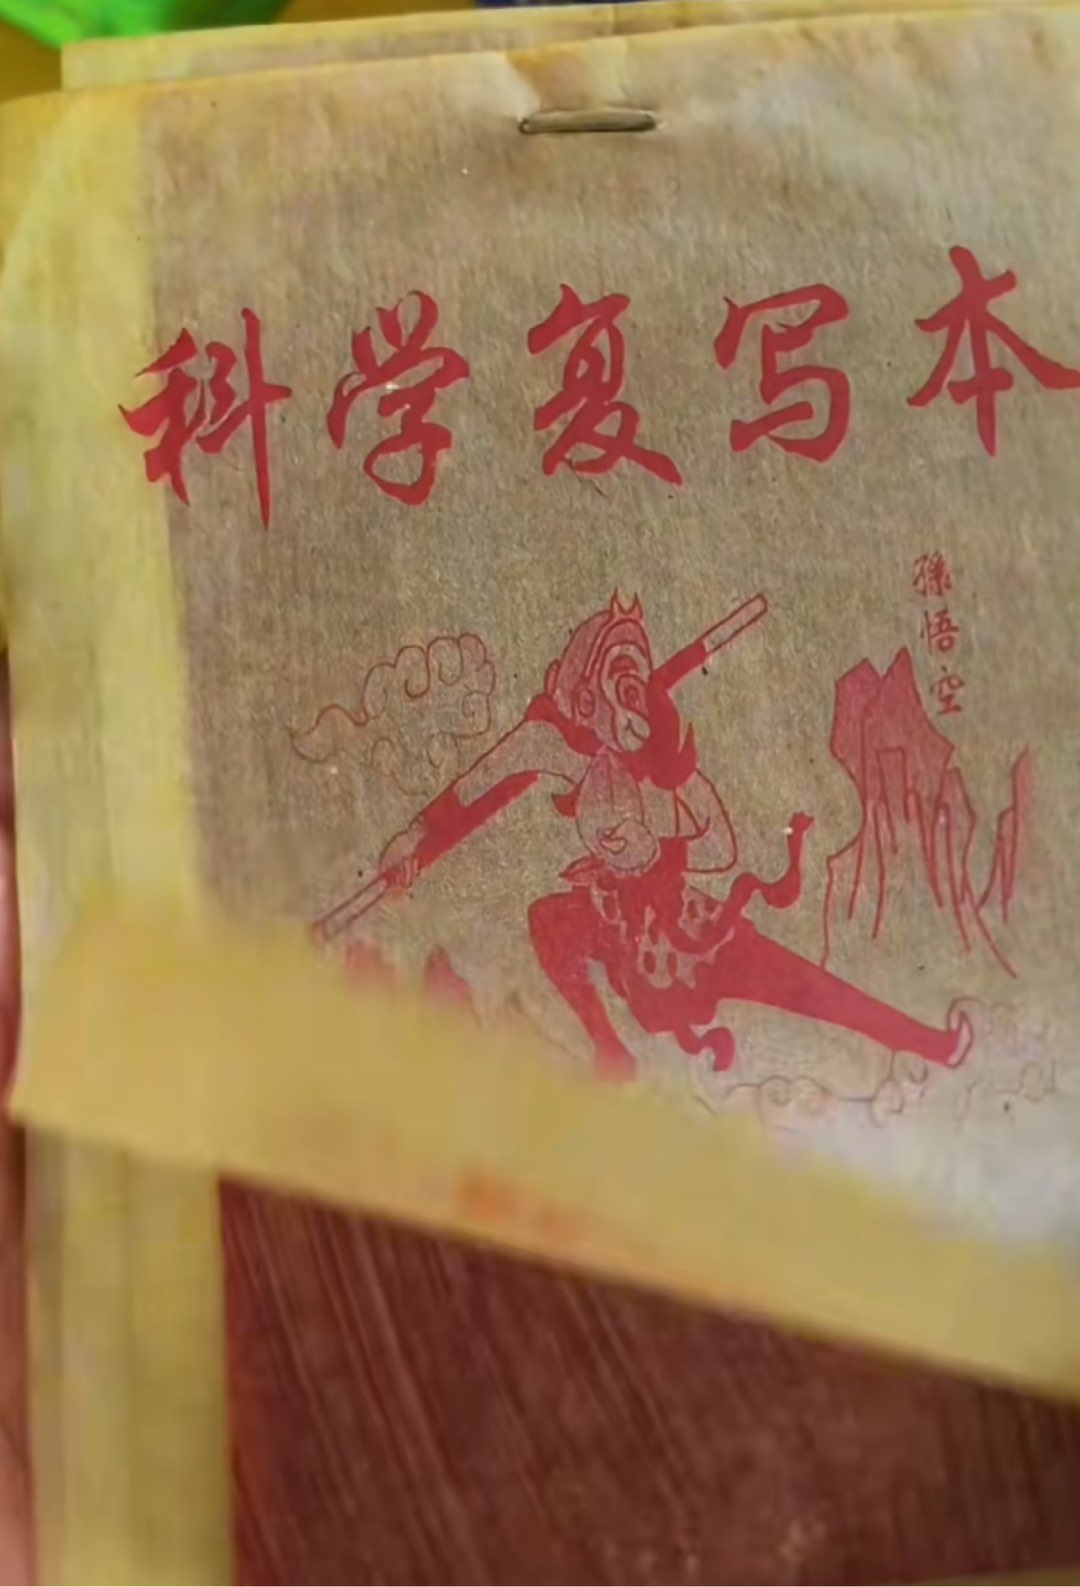 科学复写本
孫悟空